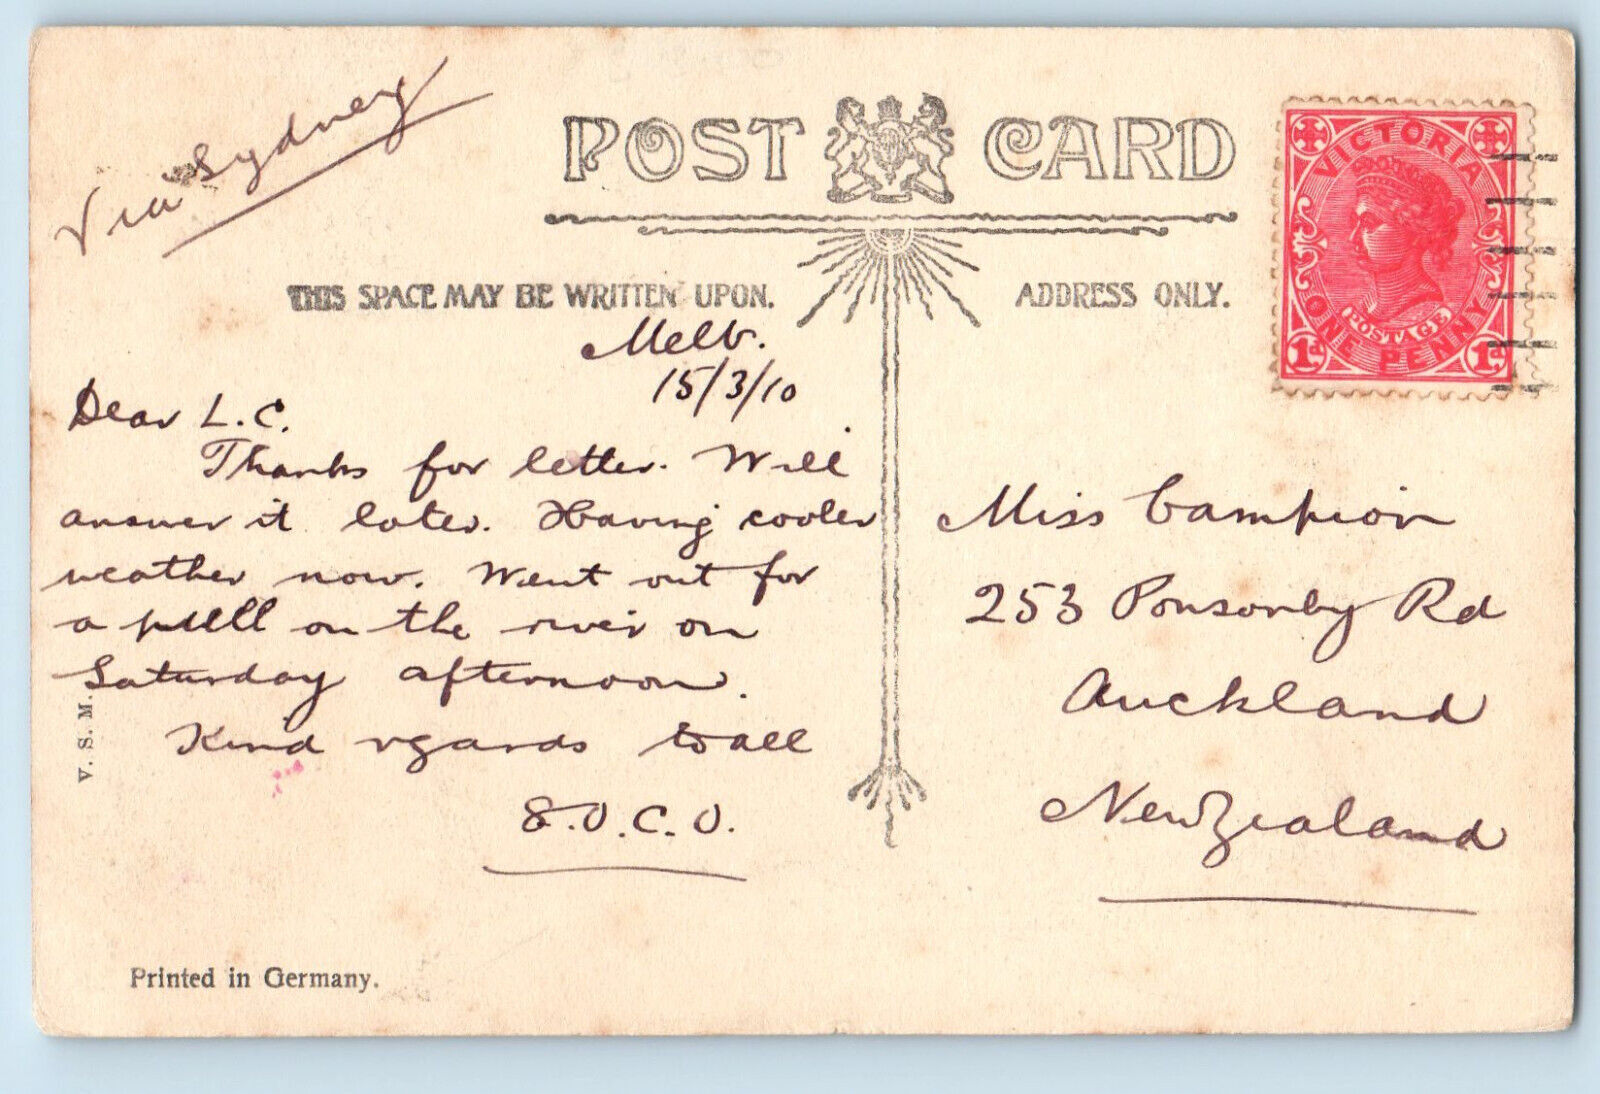 Via Sydney
POST CARD
THIS SPACE MAY BE WRITTEN UPON.
ADDRESS ONLY.
VICTORIA
POSTAGE
ONE PENNY
1d 1d
Melb.
15/3/10
Dear L.C.
Thanks for letter. Will
answer it later. Having cooler
weather now. Went out for
a pull on the river on
Saturday afternoon.
Kind regards to all
E.O.C.O.
Miss Campion
253 Ponsonby Rd
Auckland
New Zealand
V. S. M.
Printed in Germany.